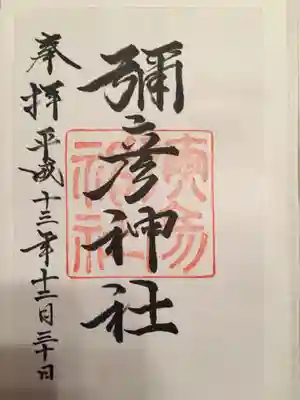 彌彦神社
奉拝 平成十三年十二月三十日
神社